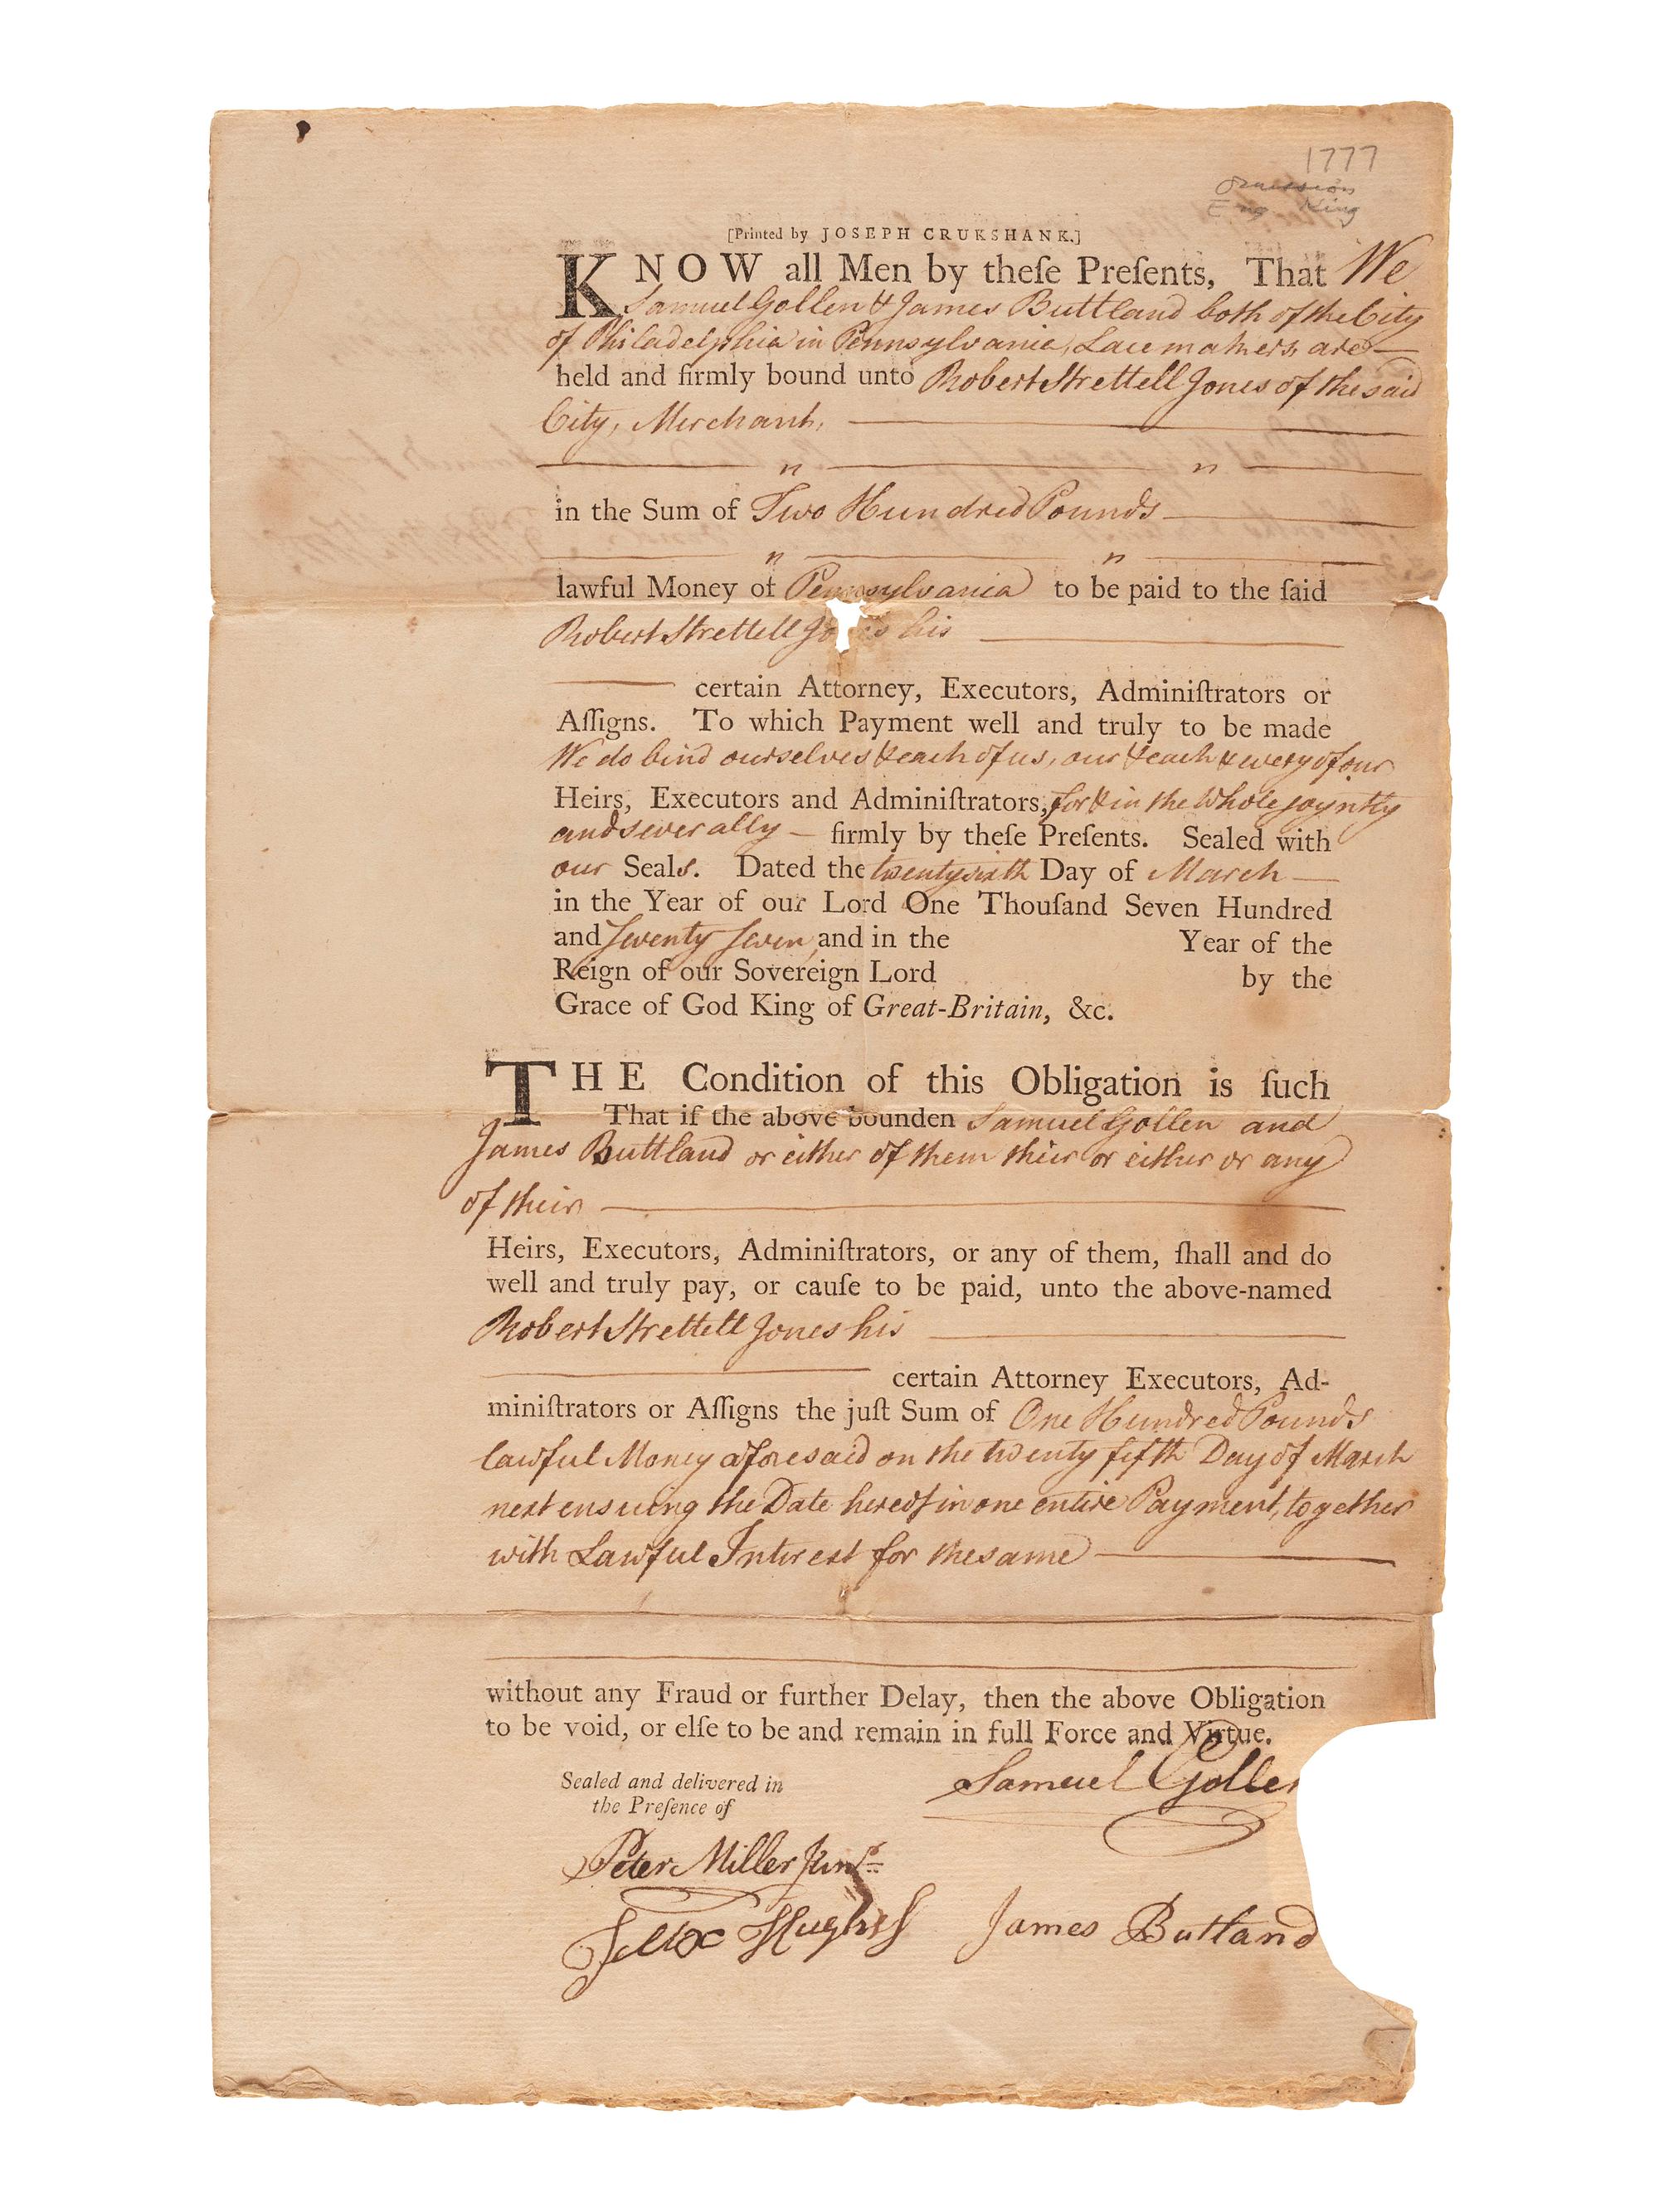 1777
Omission
Eng King
[Printed by JOSEPH CRUKSHANK.]
KNOW all Men by theſe Preſents, That We
Samuel Gollen & James Buttland both of the City
of Philadelphia in Pennsylvania, Lacemakers, are
held and firmly bound unto Robert Strettell Jones of the said
City, Merchant,
in the Sum of Two Hundred Pounds
lawful Money of Pennsylvania to be paid to the ſaid
Robert Strettell Jones his
certain Attorney, Executors, Adminiſtrators or
Aſſigns. To which Payment well and truly to be made
We do bind ourselves & each of us, our & each & every of our
Heirs, Executors and Adminiſtrators, for & in the Whole joyntly
and severally firmly by theſe Preſents. Sealed with
our Seals. Dated the twenty sixth Day of March
in the Year of our Lord One Thouſand Seven Hundred
and Seventy Seven, and in the Year of the
Reign of our Sovereign Lord by the
Grace of God King of Great-Britain, &c.
THE Condition of this Obligation is ſuch
That if the above bounden Samuel Gollen and
James Buttland or either of them their or either or any
of their
Heirs, Executors, Adminiſtrators, or any of them, ſhall and do
well and truly pay, or cauſe to be paid, unto the above-named
Robert Strettell Jones his
certain Attorney Executors, Ad-
miniſtrators or Aſſigns the juſt Sum of One Hundred Pounds
lawful Money aforesaid on the twenty fifth Day of March
next ensuing the Date hereof in one entire Payment, together
with Lawful Interest for the same
without any Fraud or further Delay, then the above Obligation
to be void, or elſe to be and remain in full Force and Virtue.
Sealed and delivered in
the Preſence of
Samuel Gollen
Peter Miller Junr.
Felix Hughes
James Butland